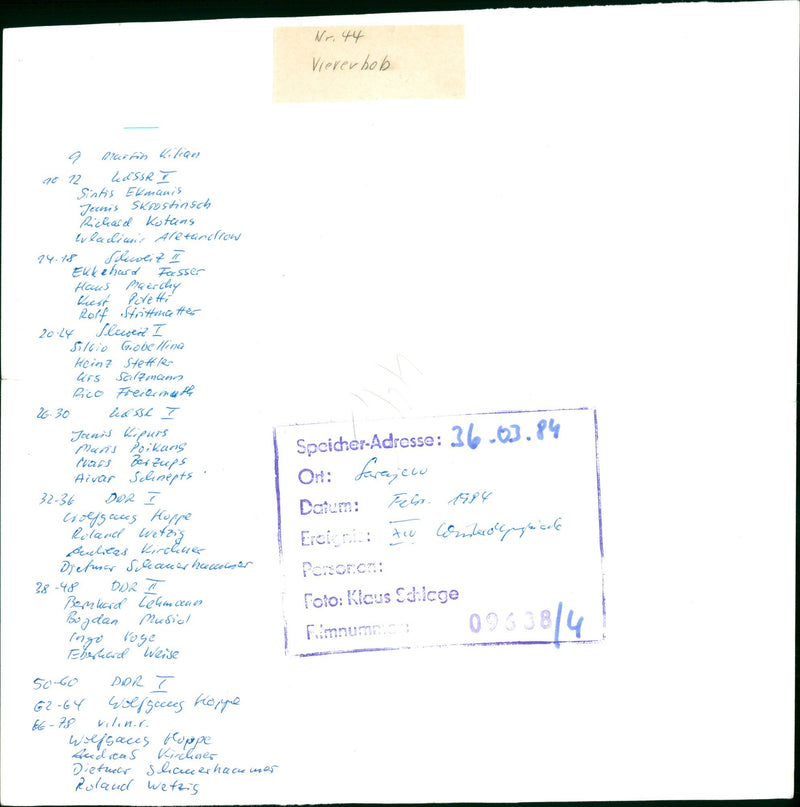 Nr. 44
Viererbob
9 Martin Kilian
10-12 UdSSR II
Sintis Ekmanis
Janis Skrostinsch
Richard Kotans
Wladimir Alexandrow
14-18 Schweiz II
Ekkehard Fasser
Hans Maerchy
Kurt Poletti
Rolf Strittmatter
20-24 Schweiz I
Silvio Giobellina
Heinz Stettler
Urs Salzmann
Rico Freiermuth
26-30 UdSSR I
Janis Kipurs
Maris Poikans
Ivars Berzups
Aivar Schnepts
32-36 DDR I
Wolfgang Hoppe
Roland Wetzig
Andreas Kirchner
Dietmar Schauerhammer
38-48 DDR II
Bernhard Lehmann
Bogdan Musiol
Ingo Voge
Eberhard Weise
50-60 DDR I
62-64 Wolfgang Hoppe
66-78 v.l.n.r.
Wolfgang Hoppe
Andreas Kirchner
Dietmar Schauerhammer
Roland Wetzig
Speicher-Adresse: 36.03.84
Ort: Sarajewo
Datum: Febr. 1984
Ereignis: XIV Winterolympiade
Personen:
Foto: Klaus Schlage
Filmnummer: 09638/4